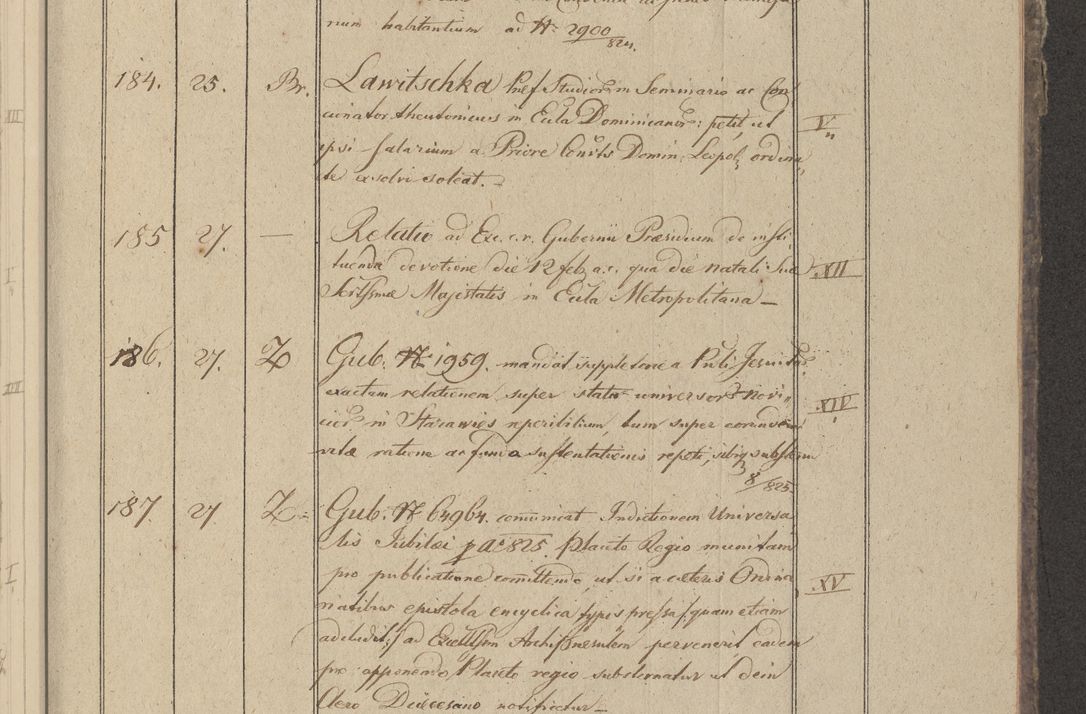 num habitantium ad N: 2900/824.
184. 25. Br. Lawitschka Præf. Studior. in Seminario ac Con
cionator theutonicus in Eccla Dominicanor: petit ut V
ipsi salarium a Priore Convtus Domin: Leopol. ordina
te exsolvi soleat.
185 27. — Relatio ad Exc. c. r. Gubernii Præsidium de insti
tuenda devotione die 12 feb. a. c. qua die natali Suæ XII
Scrtssmæ Majestatis in Eccla Metropolitana —
186. 27. Z Gub. N: 1959. mandat suppletorie a Puli Jesuitar.
exactam relationem super statu universor. novi
cior. in Starawies reperibilium, tum super eorundem XIV
vitæ ratione ac fundo sustentationis repeti, sibiq substerni
8/825.
187. 27 Z: Gub. N 64964. communicat Indictionem Universa
lis Jubilæi p Ao 825. Placeto Regio munitam
pro publicatione comittendo, ut si a cæteris Ordina XV
riatibus epistola encyclica typis pressa, quam etiam
adcludit, ad Excellssm Archipræsulem pervenerit eadem
pro apponendo Placeto regio substernatur ut dein
Clero Diœcesano notificetur —